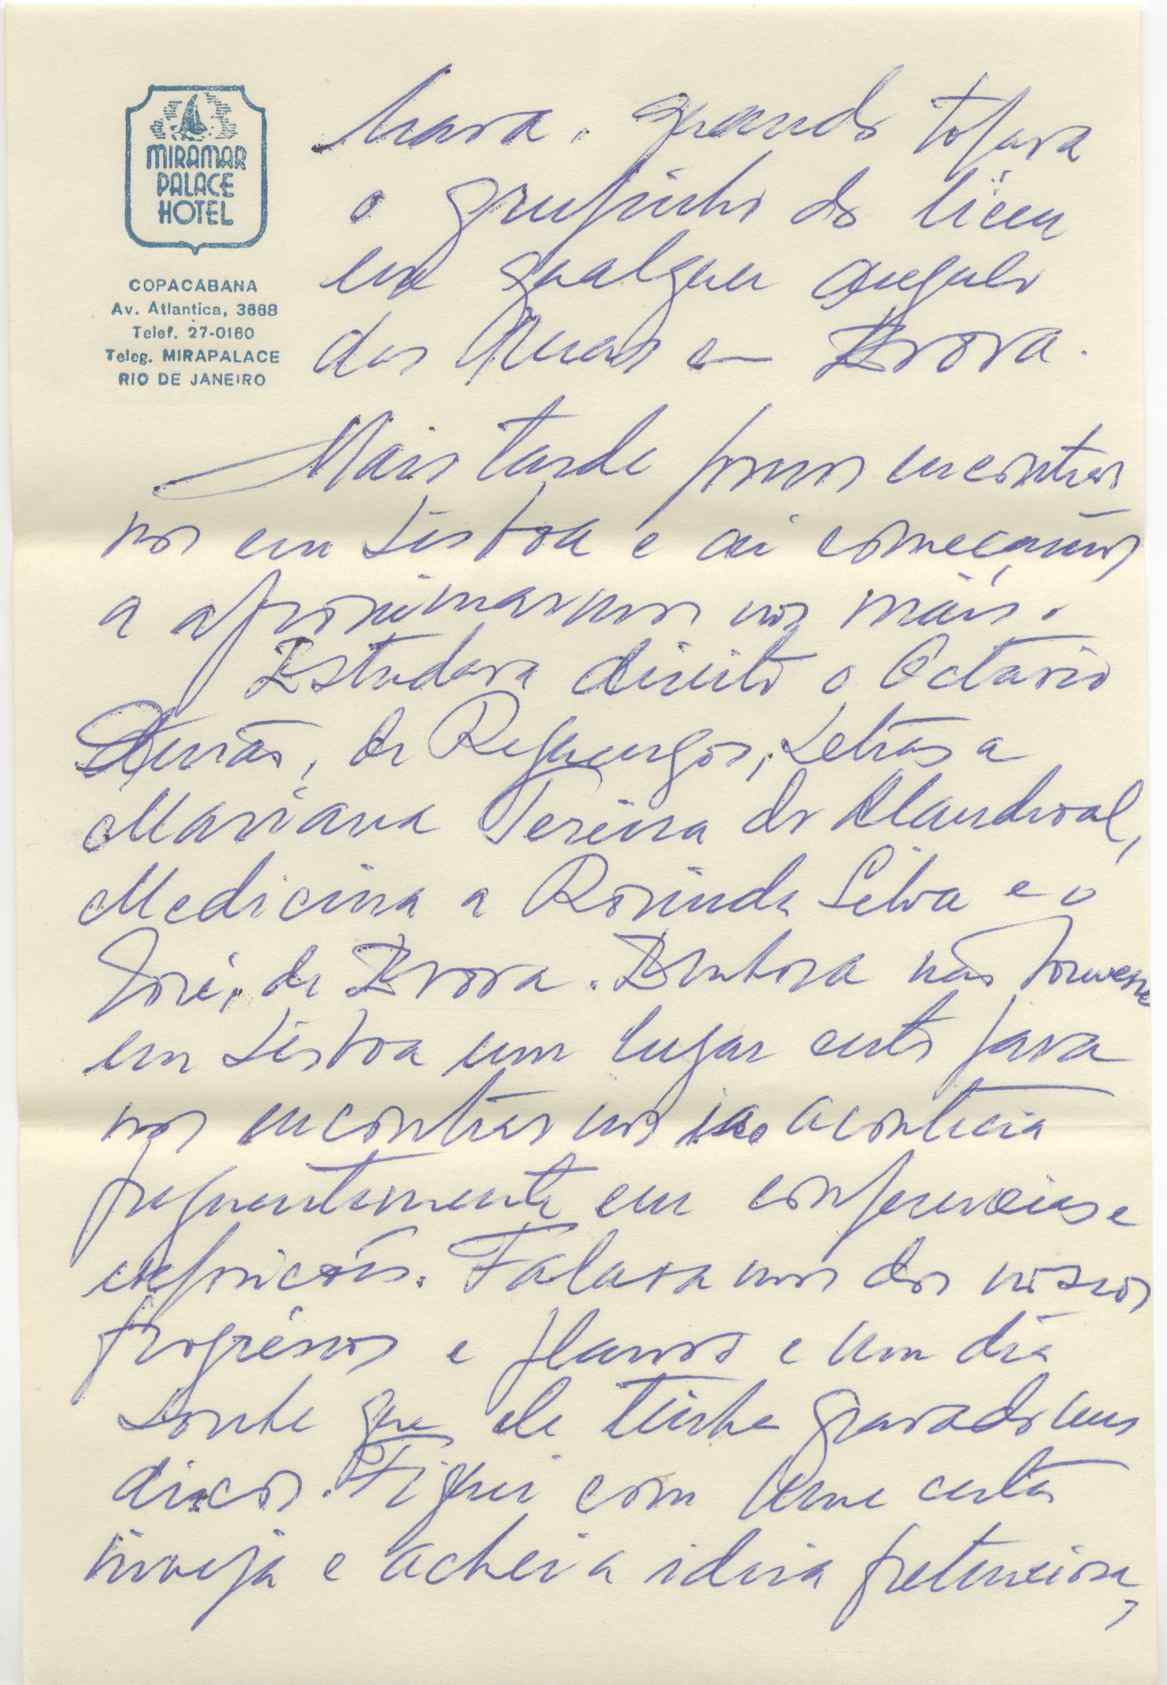 MIRAMAR
PALACE
HOTEL
COPACABANA
Av. Atlantica, 3668
Telef. 27-0160
Teleg. MIRAPALACE
RIO DE JANEIRO
quando topava
o grupinho do liceu
em qualquer angulo
das Ruas em Évora.
Mais tarde fomos encontrar
nos em Lisboa e ai começámos
a aproximarmos nos mais.
Estudava direito o Octavio
de Reguengos, Letras a
Mariana Pereira do Alandroal,
Medicina a Rosinda Silva e o
José, de Évora. Embora não houvesse
em Lisboa um lugar certo para
nos encontrarmos acontecia
frequentemente em conferencias e
exposições. Falavamos dos nossos
progressos e planos e um dia
soube que ele tinha gravado uns
discos. Fiquei com uma certa
inveja e achei a ideia pretenciosa,